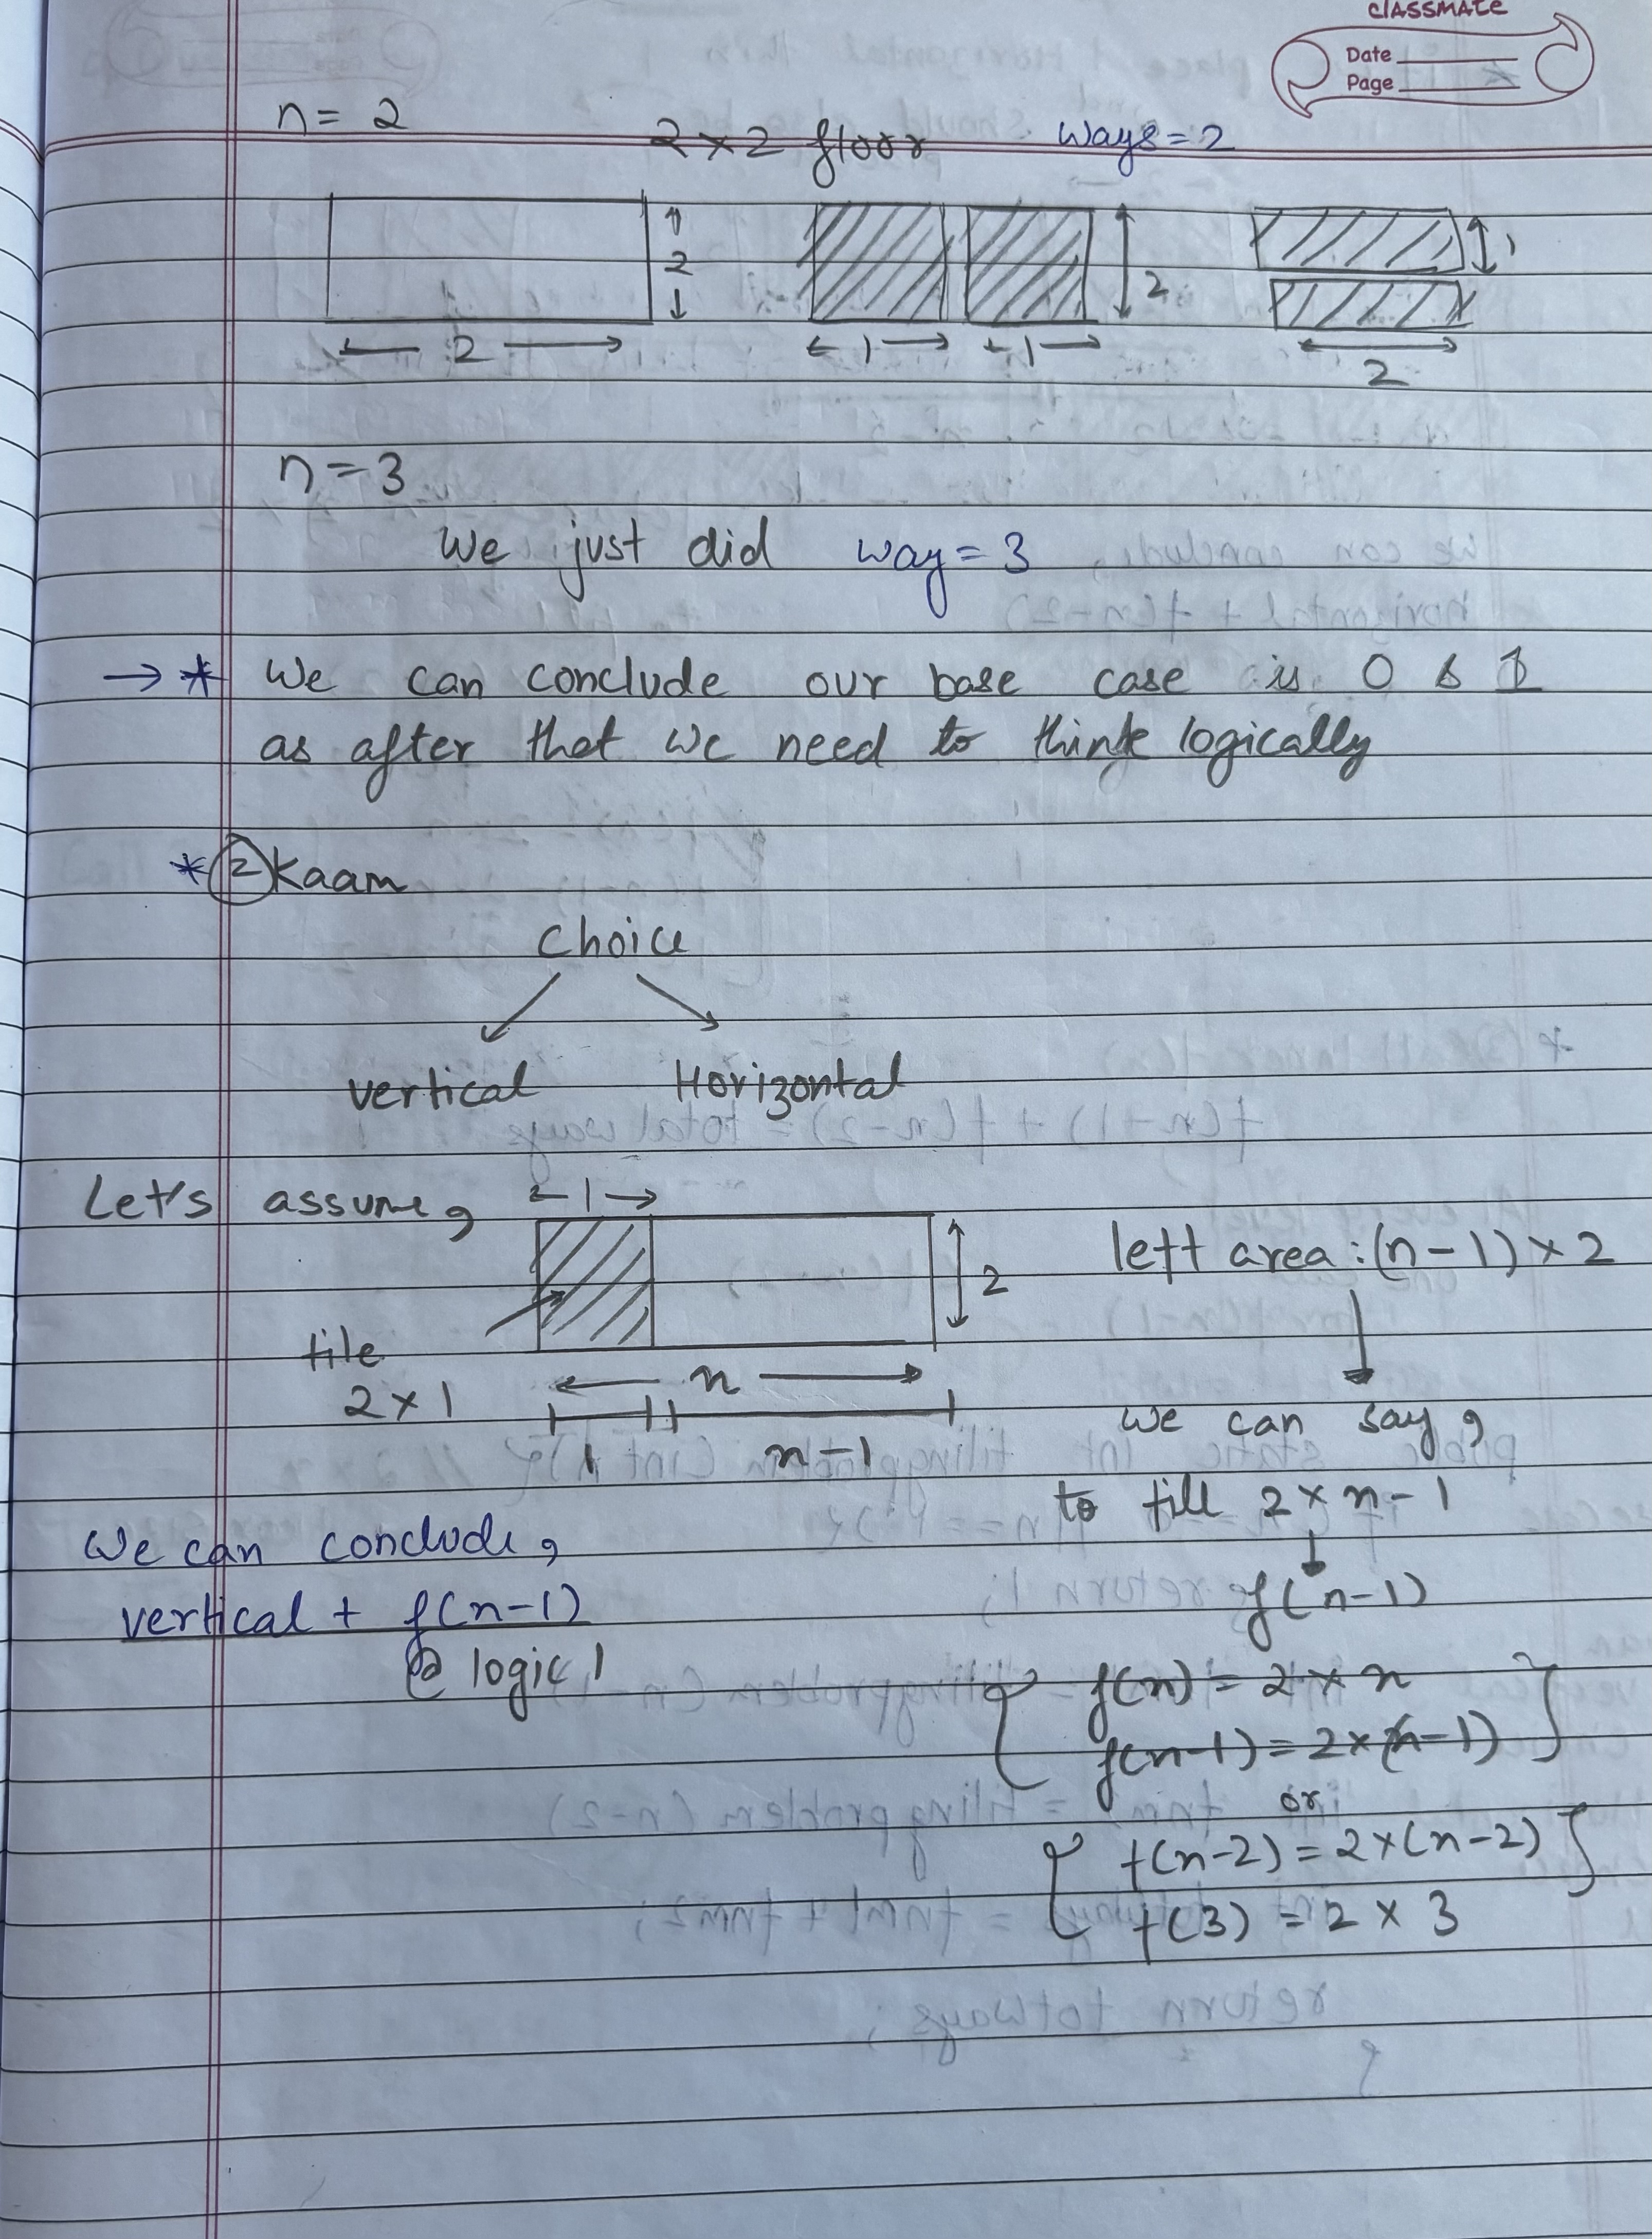 classmate
Date
Page
n = 2
2 × 2 floor ways = 2
2
2
1 1
2
1
2
n = 3
We just did way = 3
→ * We can conclude our base case is 0 & 1
as after that we need to think logically
* ② Kaam
Choice
vertical Horizontal
Let's assume,
1
2
left area : (n-1) × 2
tile
2 × 1
n
1 n-1
we can say,
to fill 2 × n-1
f(n-1)
We can conclude,
vertical + f(n-1)
@ logic 1
{ f(n) = 2 × n
f(n-1) = 2 × (n-1) }
or
{ f(n-2) = 2 × (n-2) }
f(3) = 2 × 3